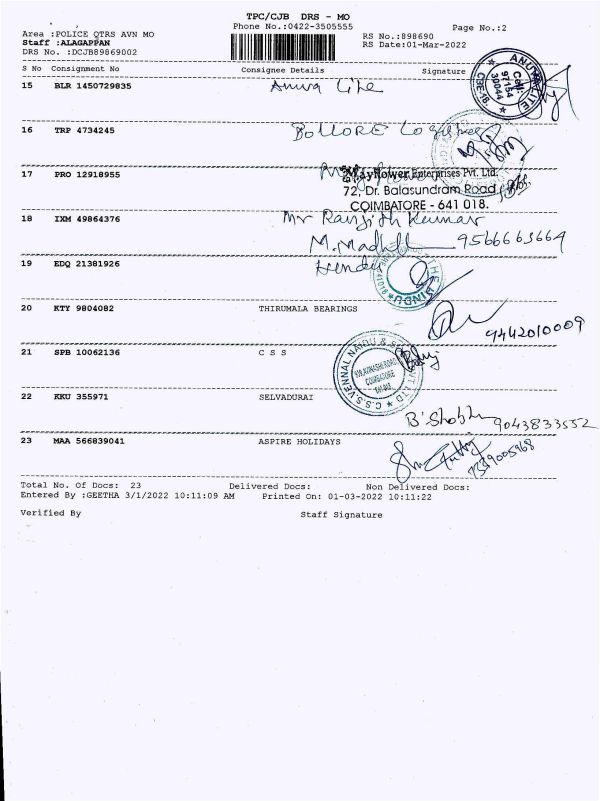 TPC/CJB DRS - MO
Phone No.:0422-3505555
Page No.:2
Area :POLICE QTRS AVN MO
RS No.:898690
Staff :ALAGAPPAN
RS Date:01-Mar-2022
DRS No. :DCJB89869002
S No Consignment No Consignee Details Signature
15 BLR 1450729835 Anuva Lite
ANUVA LITE
Cell: 97154 30044
CBE-18
16 TRP 4734245 BOLLORE Logistics
17 PRO 12918955
Mayflower Enterprises Pvt. Ltd.
72, Dr. Balasundram Road
COIMBATORE - 641 018.
18 IXM 49864376 Mr Ranjith Kumar
M. 9566663664
19 EDQ 21381926 Hindu
THE HINDU
20 KTY 9804082 THIRUMALA BEARINGS
9442010009
21 SPB 10062136 C S S
C.S.S. VENNAL NAIDU & PVT LTD
AVINASHI ROAD
COIMBATORE
22 KKU 355971 SELVADURAI
B'Shobh 9043833552
23 MAA 566839041 ASPIRE HOLIDAYS
7339005968
Total No. Of Docs: 23 Delivered Docs: Non Delivered Docs:
Entered By :GEETHA 3/1/2022 10:11:09 AM Printed On: 01-03-2022 10:11:22
Verified By Staff Signature